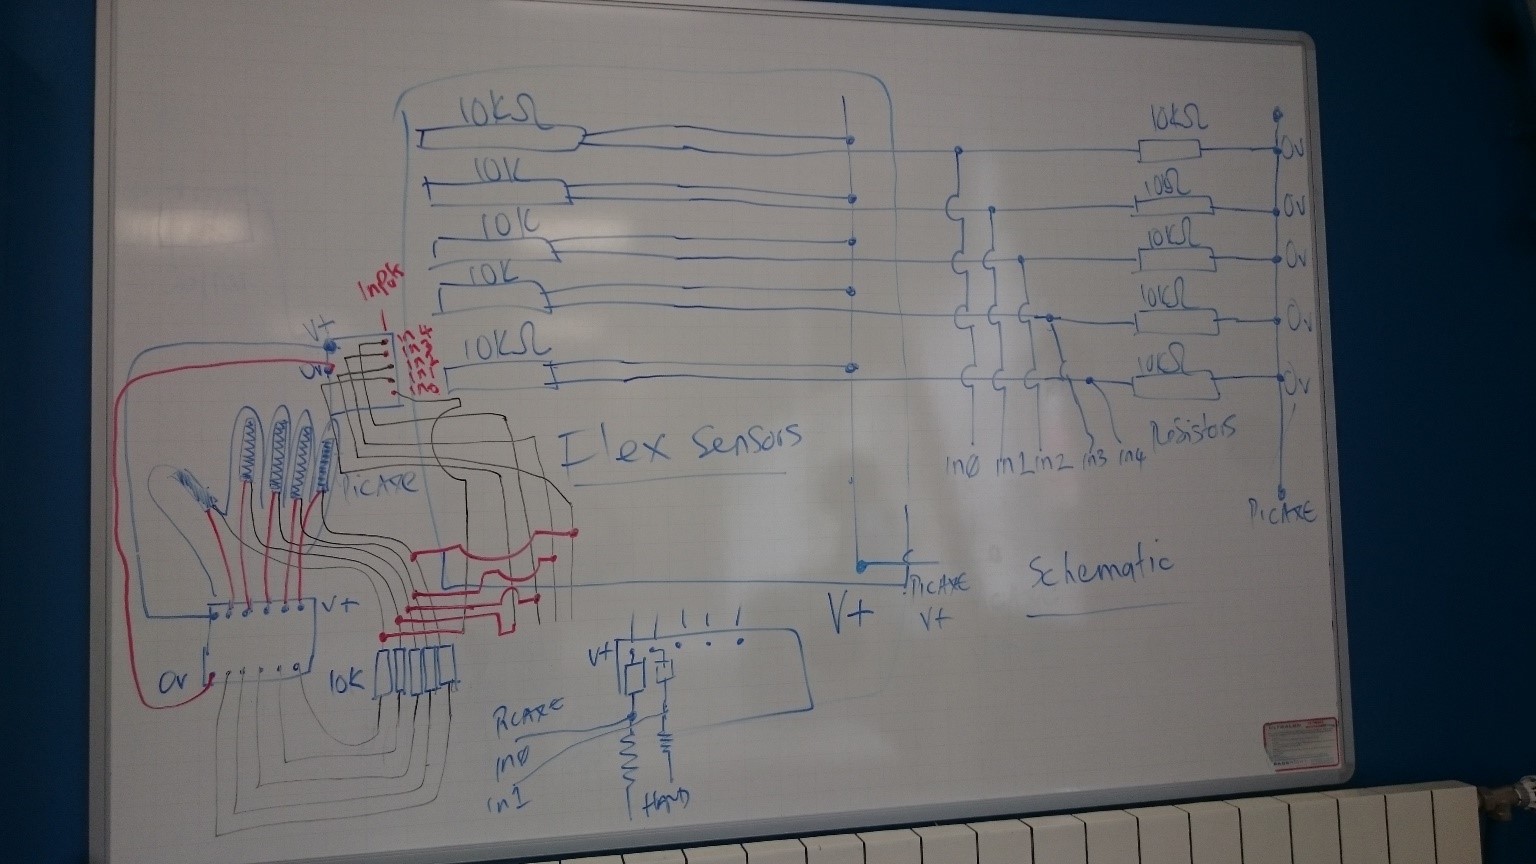 10KΩ
10K
10K
10K
10KΩ
Flex Sensors
10KΩ
0v
10Ω
0v
10KΩ
0v
10KΩ
0v
10KΩ
0v
Resistors
in0 in1 in2 in3 in4
PiCAXE
Schematic
V+
PiCAXE
V+
Input
V+
0v
PiCAXE
V+
0v
10K
V+
PiCAXE
in0
in1
HAND